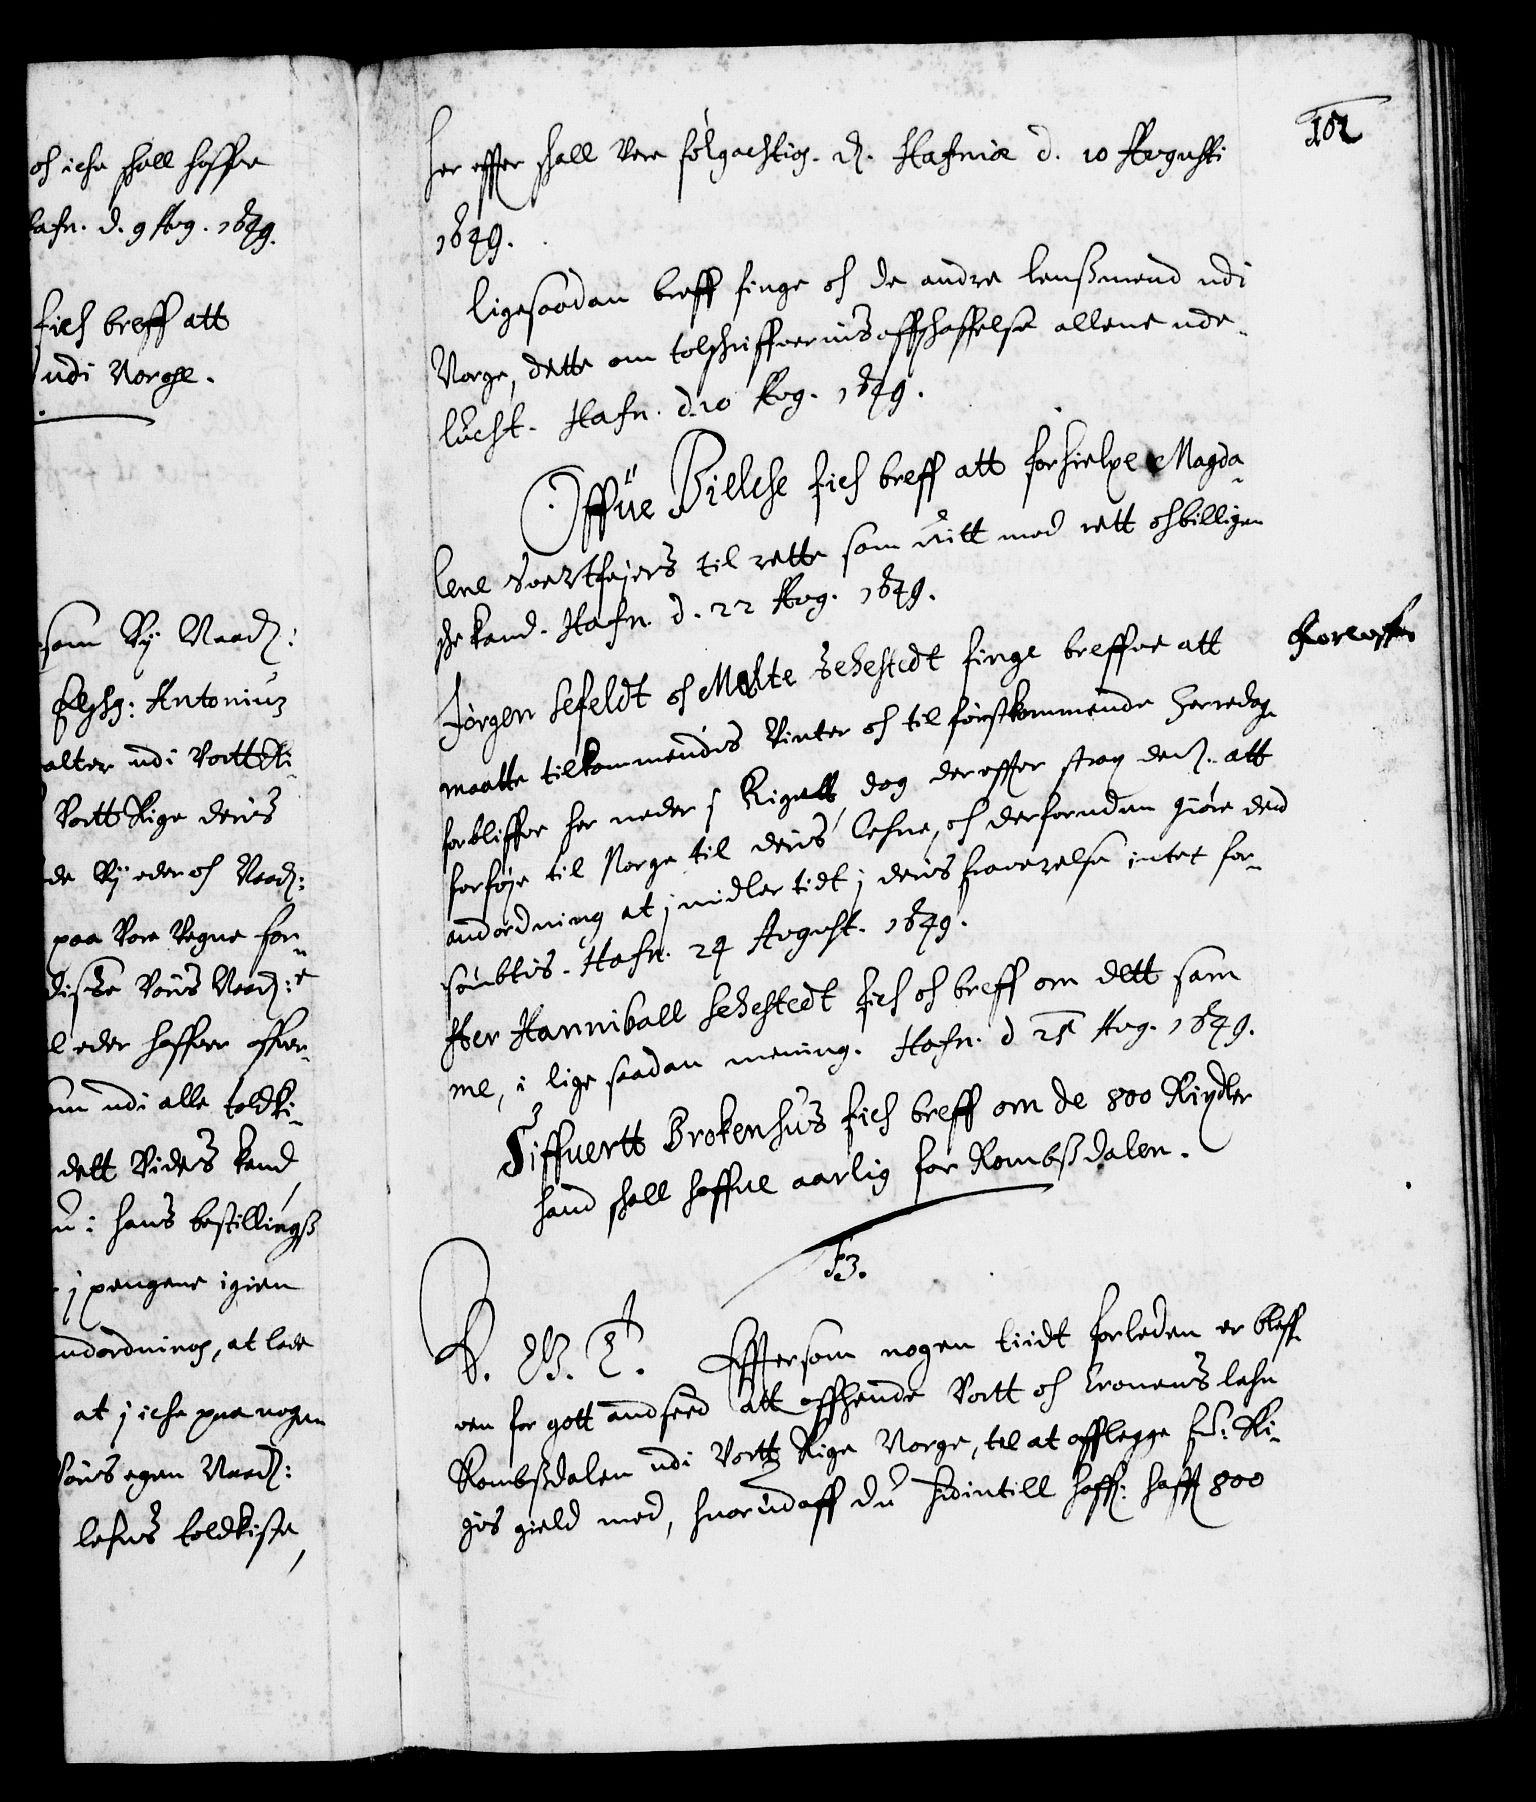 och iche schall haffue
Hafn. d. 9 Aug. 1649.
fich breff att
udi Norge.
som Vy Naad:
Elsch: Antonius
alter udi Vortt Ri-
Vortt Rige dens
de Vy eder och Naad:
paa Vore Vegne for-
diske Voris Naad:
eder haffuer offuer-
udi alle toldki-
dett Videre kand
i hans bestillings
j pengene igien
andordning, at lade
at j iche paa nogen
Voris egen Naad:
lehns toldkiste,
102
her effter schall Vere følgachtig. D. Hafniæ d. 10 Augusti
1649.
Ligesaadan breff finge och de andre lensmend udi
Norge, dette om tolschriffuernis affschaffelse allene ude-
lucht. Hafn. d. 10 Aug. 1649.
Offue Bielche fich breff att forhielpe Magda-
lene Suertfejers til rette som Vitt med rett och billigen
sche kand. Hafn. d. 22 Aug. 1649.
Jørgen Sefeldt och Malte Sehestedt finge breffue att
Forloff
maatte tilkommendis Vinter och til førstkommende Herredag
forbliffue her neder i Riget, dog der effter strax denn. att
forføje til Norge til deris Lehne, och derforuden giøre den
andordning at j midler tidt j deris frauerelse intet for-
sømbtis. Hafn. 24 August. 1649.
Her Hanniball Sehestedt fich och breff om dett sam
me, i lige saadan mening. Hafn. d 25 Aug. 1649.
Siffuertt Brokenhus fich breff om de 800 Rixdler
hand schall haffue aarlig for Rombsdalen.
F3.
V. G. T. Efftersom nogen tiidt forleden er bleff-
uen for gott andseed att affhende Vortt och Cronens lehn
Rombsdalen udi Vortt Rige Norge, til at afflegge sa: Ri-
gis gield med, huorudaff du hidintill haff: hafft 800